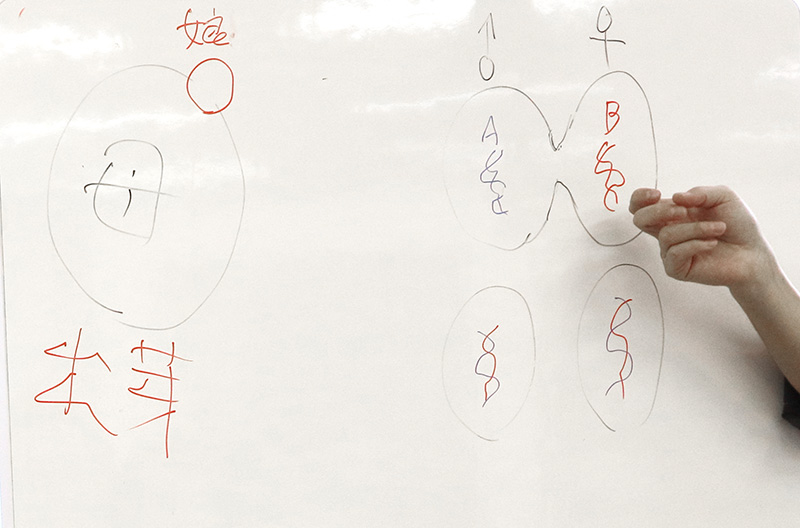 娘
母
出芽
♂ ♀
A B